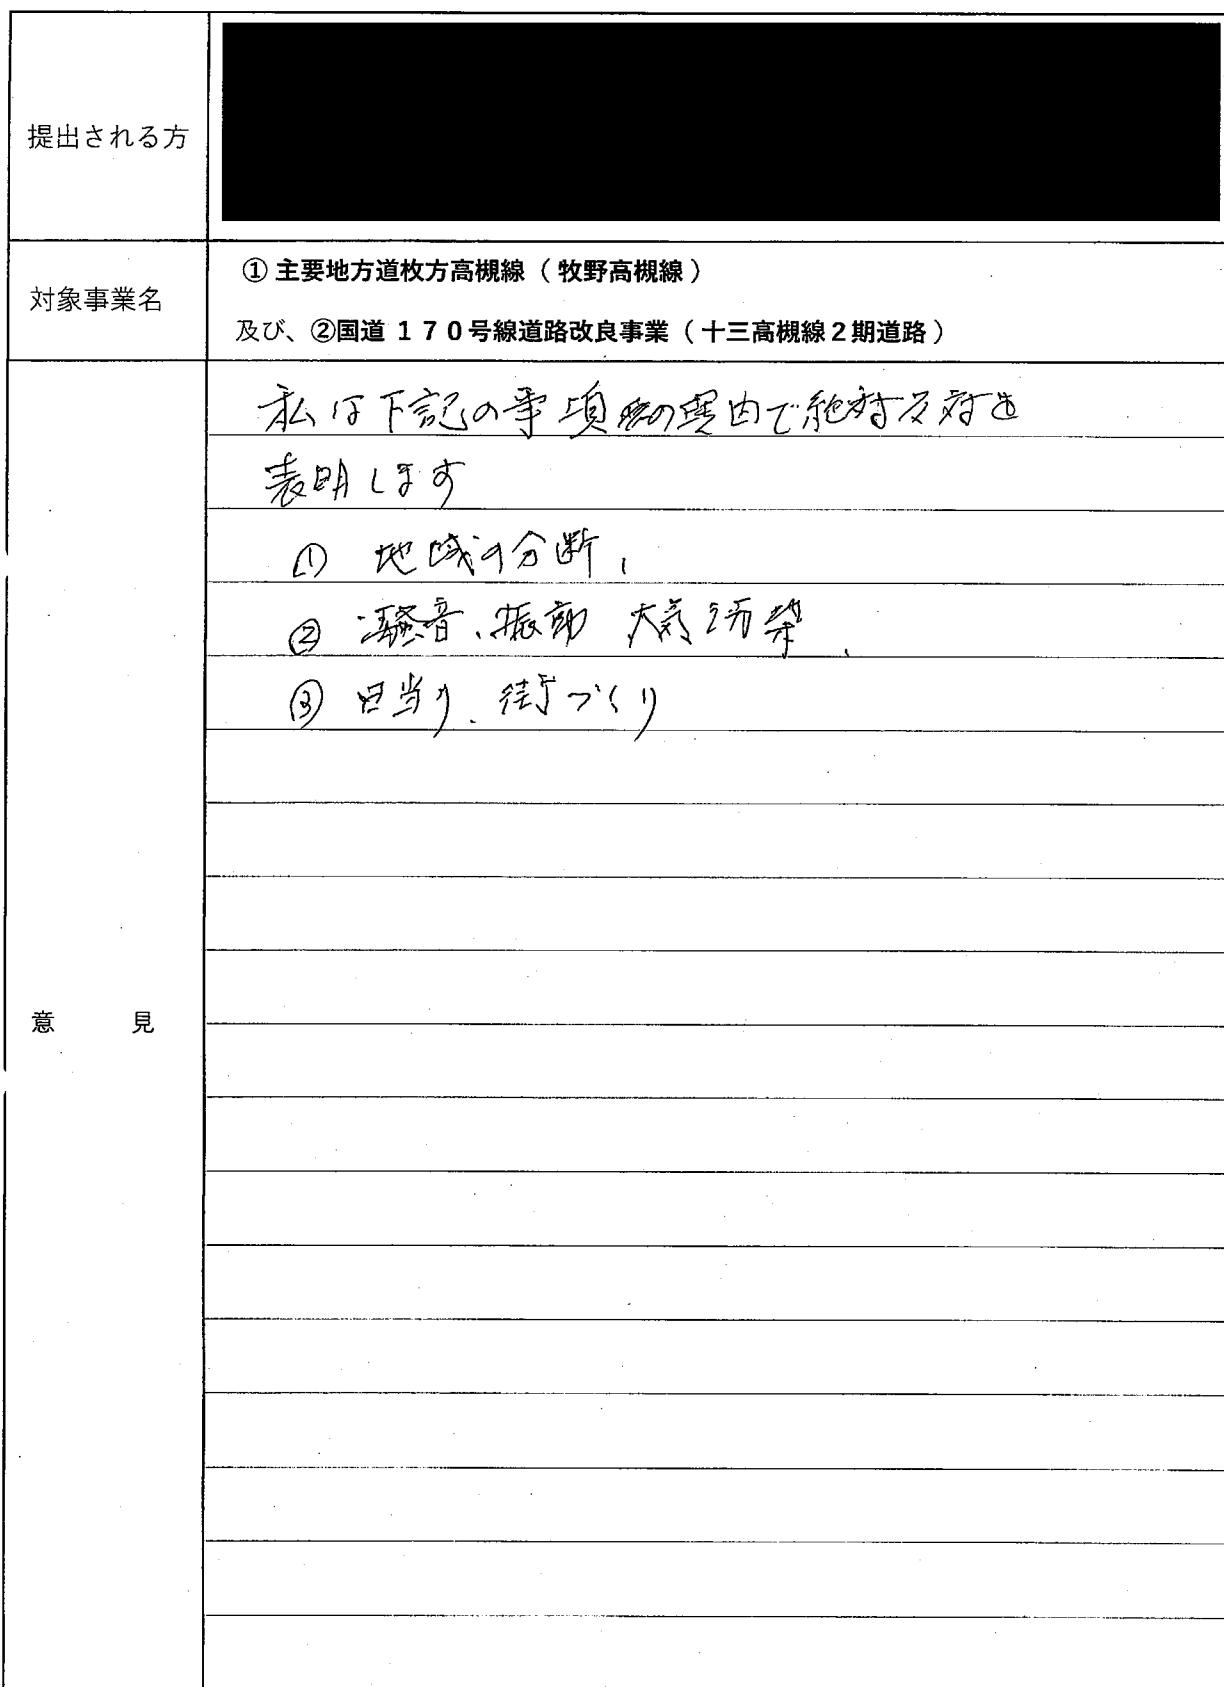 提出される方
対象事業名
① 主要地方道枚方高槻線（牧野高槻線）
及び、②国道１７０号線道路改良事業（十三高槻線２期道路）
意見
私は下記の事項の理由で絶対反対を
表明します
① 地域の分断、
② 騒音、振動 大気汚染、
③ 日当り、街づくり